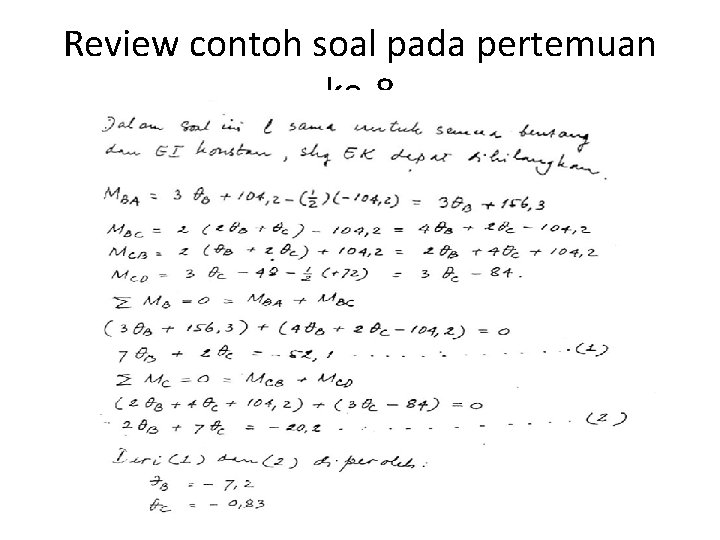 Review contoh soal pada pertemuan
ke 8
Dalam soal ini l sama untuk semua bentang
dan EI konstan, shg EK dapat dihilangkan.
M_BA = 3 θ_B + 104,2 - (½)(-104,2) = 3θ_B + 156,3
M_BC = 2 (2θ_B + θ_C) - 104,2 = 4θ_B + 2θ_C - 104,2
M_CB = 2 (θ_B + 2θ_C) + 104,2 = 2θ_B + 4θ_C + 104,2
M_CD = 3 θ_C - 48 - ½ (+72) = 3 θ_C - 84.
Σ M_B = 0 = M_BA + M_BC
(3θ_B + 156,3) + (4θ_B + 2θ_C - 104,2) = 0
7θ_B + 2θ_C = - 52,1 . . . . . . . . . . (1)
Σ M_C = 0 = M_CB + M_CD
(2θ_B + 4θ_C + 104,2) + (3θ_C - 84) = 0
2θ_B + 7θ_C = - 20,2 . . . . . . . . . . (2)
Dari (1) dan (2) diperoleh :
θ_B = - 7,2
θ_C = - 0,83